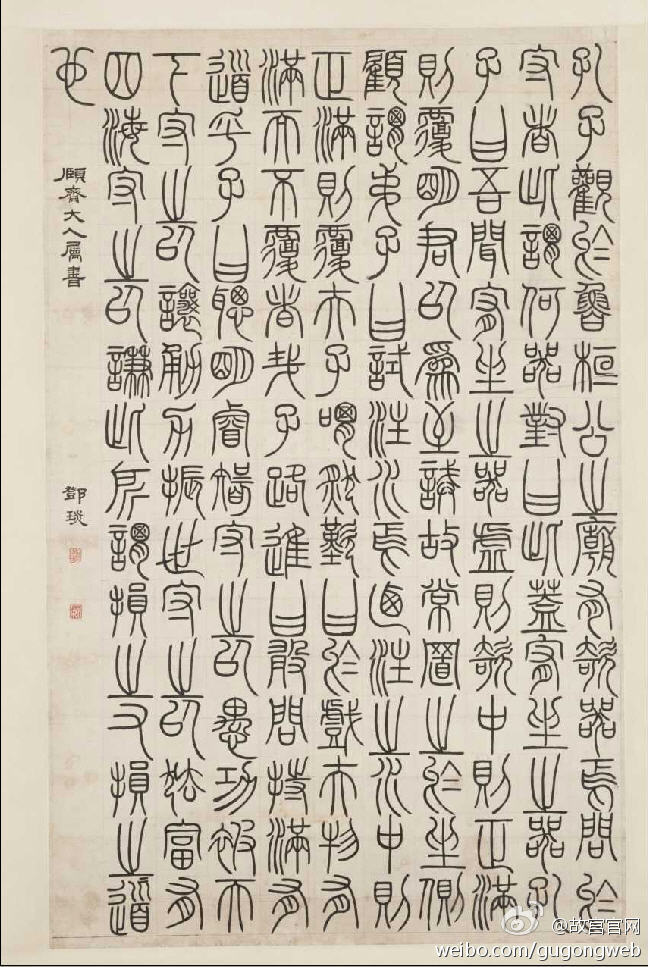 孔子觀於魯桓公之廟有欹器焉問於
守者此謂何器對曰此蓋宥坐之器孔
子曰吾聞宥坐之器虛則欹中則正滿
則覆明君以爲至誡故常置之於坐側
顧謂弟子曰試注水焉乃注之水中則
正滿則覆夫子喟然歎曰於戲夫物有
滿而不覆者哉子路進曰敢問持滿有
道乎子曰聰明睿智守之以愚功被天
下守之以讓勇力振世守之以怯富有
四海守之以謙此所謂損之又損之道
也
頤齋大人屬書
鄧琰
@故宫官网
weibo.com/gugongweb